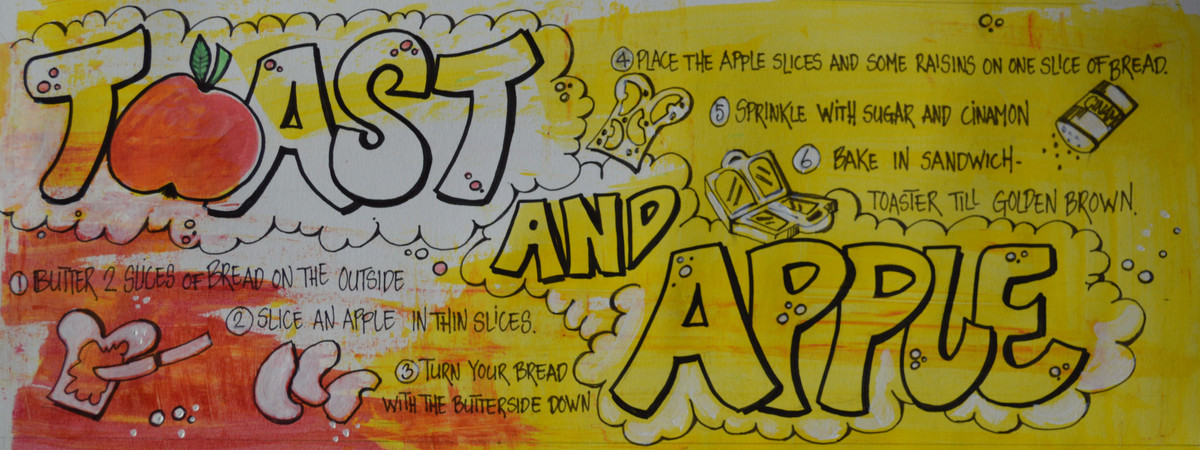 TOAST
AND
APPLE
① BUTTER 2 SLICES OF BREAD ON THE OUTSIDE
② SLICE AN APPLE IN THIN SLICES.
③ TURN YOUR BREAD
WITH THE BUTTERSIDE DOWN
④ PLACE THE APPLE SLICES AND SOME RAISINS ON ONE SLICE OF BREAD.
⑤ SPRINKLE WITH SUGAR AND CINAMON
CINAM
⑥ BAKE IN SANDWICH-
TOASTER TILL GOLDEN BROWN.